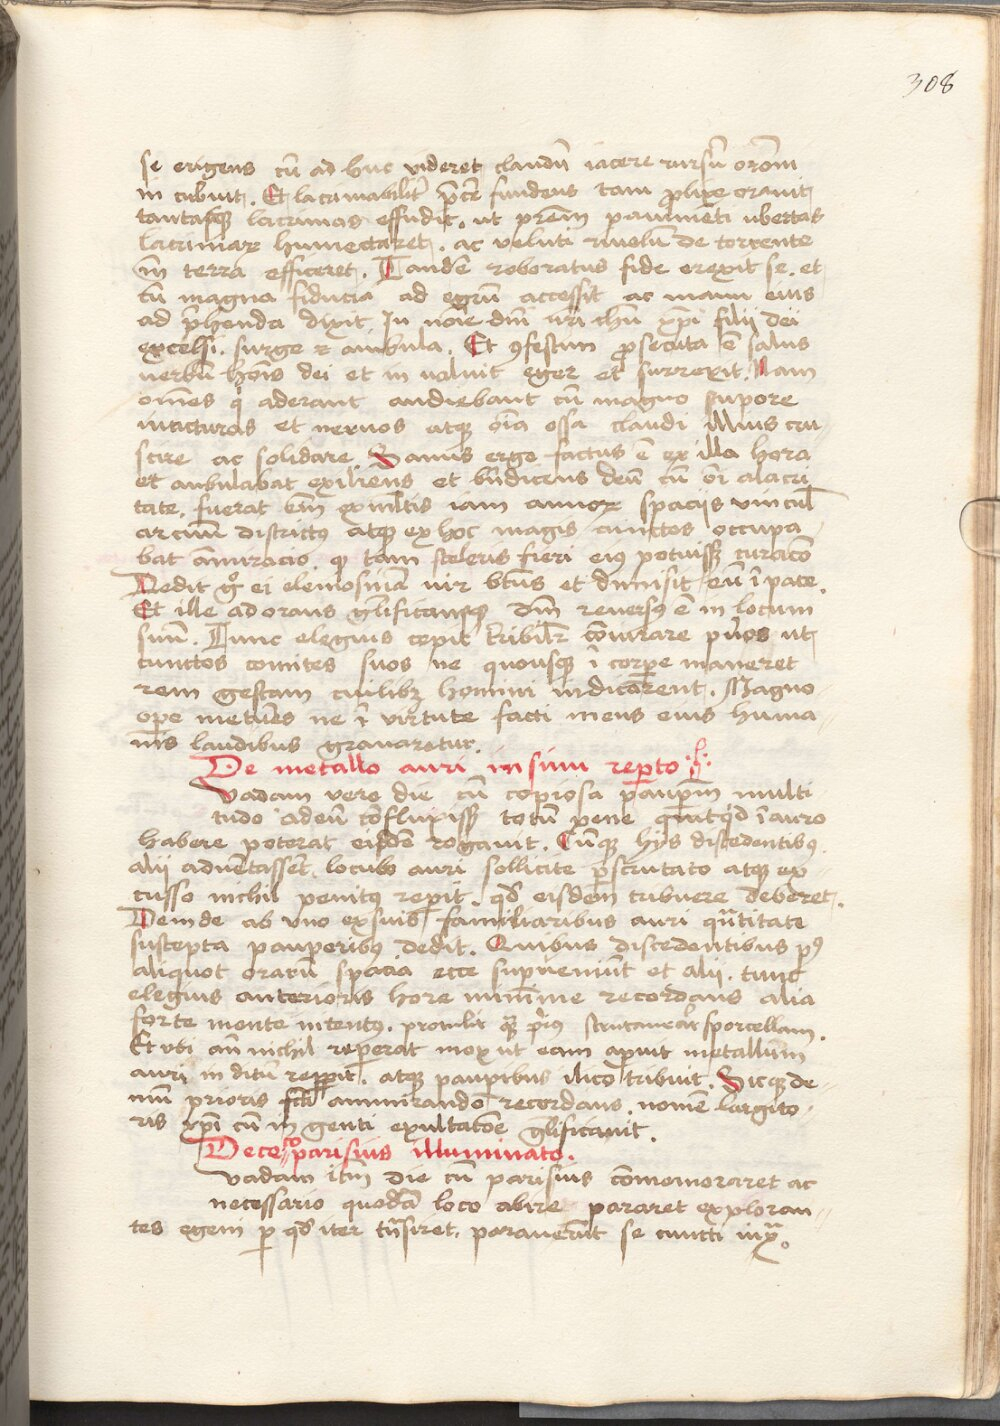 308
se erigens cū ad huc videret claudū iacere rursū orōni
in cubuit. Et lacrimabilit' p̄ces fundens tam prolixe orauit
tantasq̄ lacrimas effudit. ut p̄rem pauimēti ubertas
lacrimaꝝ humectaret. ac veluti riuulū de torrente
in terra efficeret. Tandē roboratus fide erexit se. et
cū magna fiducia ad egrū accessit ac manu eius
ad p̄henda dixit In noīe dn̄i nr̄i ihū xp̄i filij dei
excelsi. surge et ambula. Et ꝯfestim prosecuta ē salus
uerbū hoīs dei et in ualuit eger et surrexit. Nam
om̄es qͥ aderant audiebant cū magno stupore
iuncturas et neruos atqꝫ oīa ossa claudi illius cru
scire ac solidare. Sanus ergo factus ē ex illa hora
et ambulabat exiliens et bn̄dicens deū cū oī alacri
tate. fuerat em̄ ex ml̄tis iam annoꝝ spacijs vincul'
artuū districtꝰ atqꝫ ex hoc magis cunctos occupa
bat amiracio. qꝫ tam sceleris fieri eiꝰ potuissꝫ curacō
Dedit gͦ ei elemosinā uir bt̄us et dimisit eū ī pace.
Et ille adorans glificansqꝫ dm̄ reuersꝰ ē in locum
suū. Tunc elegius cepit t'ribilr̄ cōiurare pūos ut
cunctos comites suos ne quousqꝫ ī corpe maneret
rem gestam cuilibꝫ homini indicarent. Magno
opere metuēs ne ī virtute facti mens eius huma
nis laudibus grauaretur.
De metallo auri in sinu reperto
Vadam vero die cū copiosa paupꝝ multi
tudo ad eū cōfluxissꝫ totū pene quitqͥd ī auro
habere poterat eisdē rogauit. Cūqꝫ hijs discedentibꝰ
alij aduētassēt. loculo auri sollicite p̄scrutato atqꝫ ex
cusso nichil penitꝰ repit. qd' eisdem tribuere deberet.
Deinde ab vno ex suis familiaribus auri qūtitate
suscepta pauperibꝰ dedit. Quibus discedentibus pꝰ
aliquot orarū spacia ecce supueniūt et alij. tunc
elegius anterioris hore minime recordans alia
forte mente intentꝰ. protulit qꝫ pͥus scrutauerat sporcellam.
Et vbi an̄ nichil repererat mox ut eam apuit metallum
auri in ditū repperit. atqꝫ paupibus ilico tribuit. Sicqꝫ de
mū prioris fc̄i ammirando recordans. nomē largito
ris xp̄i cū in genti exultatōe glificauit.
De ceco parisius illuminato.
Vadam itm̄ die cū parisius cōmemoraret ac
necessario quodā loco abire pararet exploran
tes egeni p qd' iter tn̄siret. parauerūt se cuncti iuxᵃ